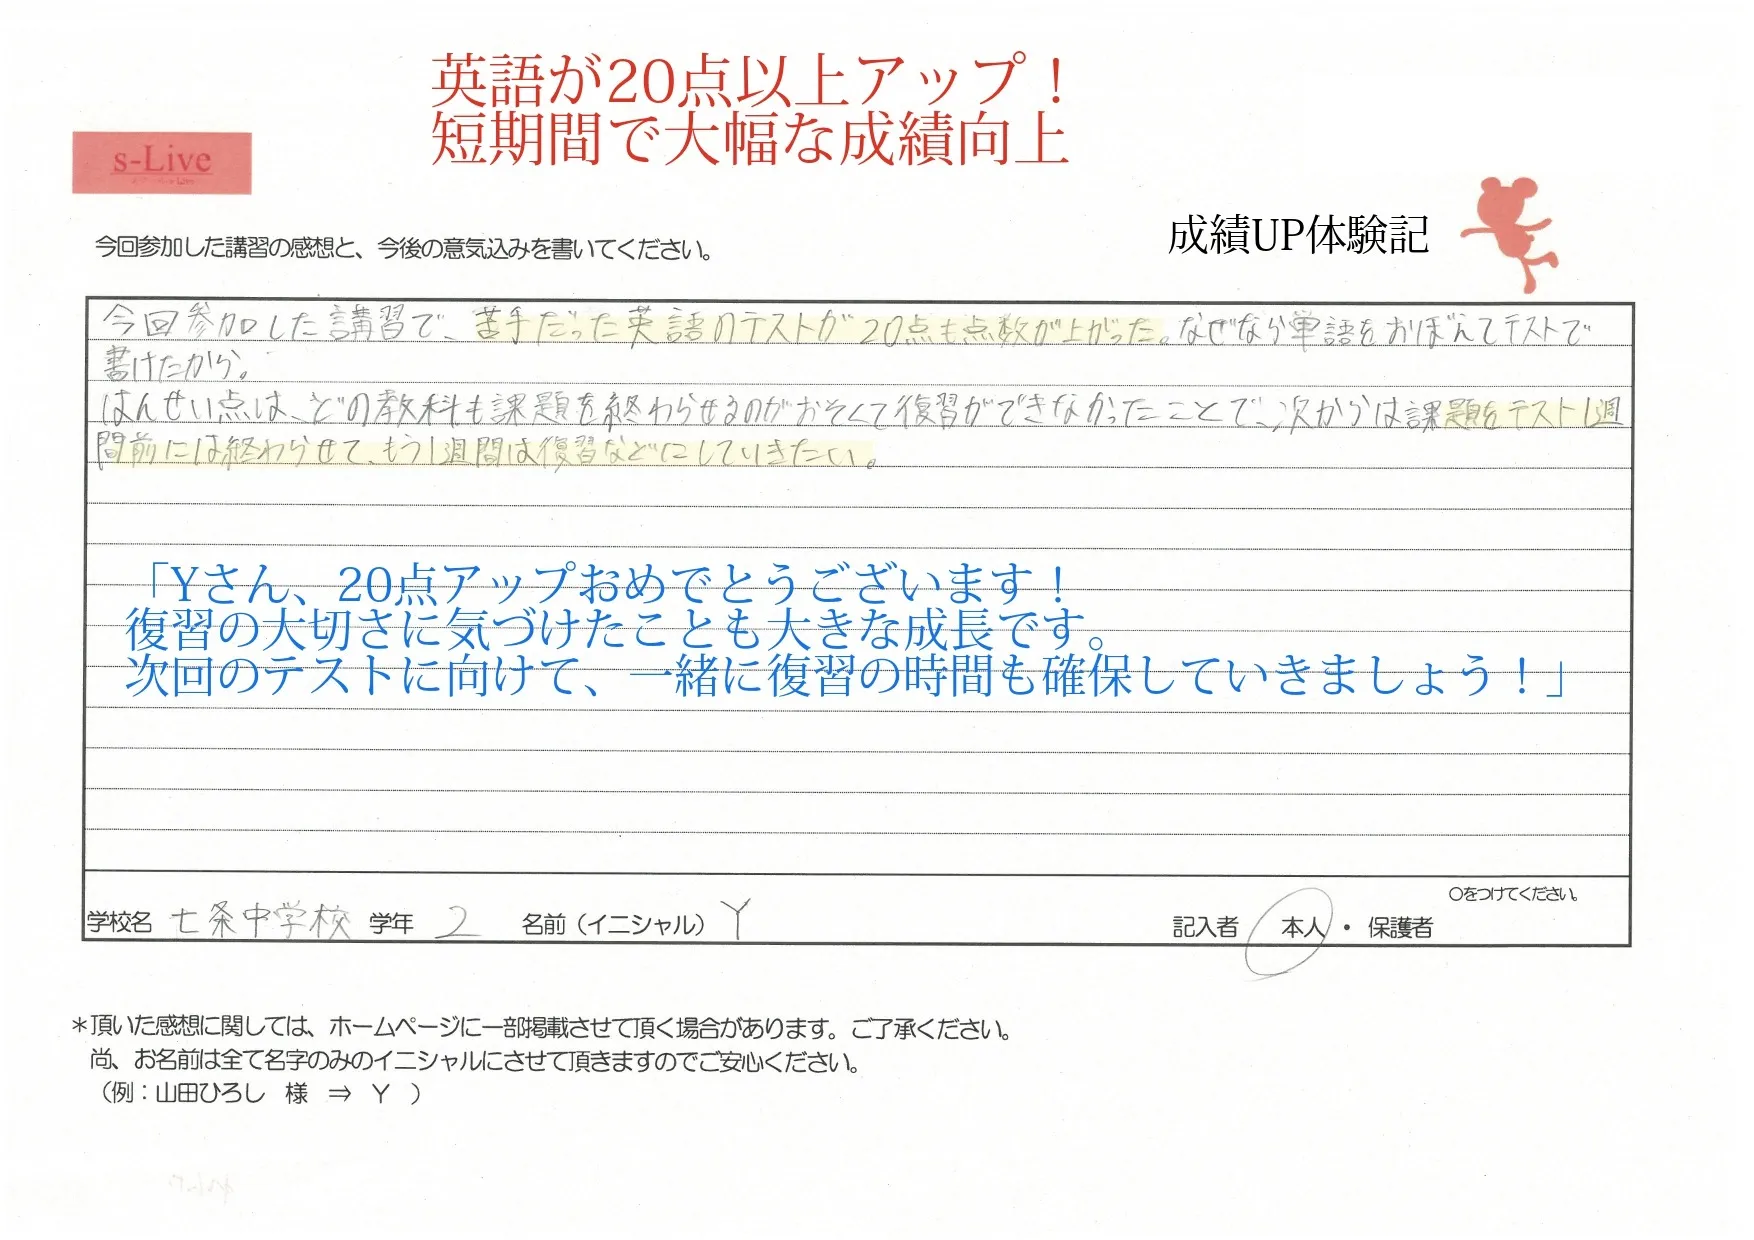 英語が20点以上アップ！
短期間で大幅な成績向上
s-Live
成績UP体験記
今回参加した講習の感想と、今後の意気込みを書いてください。
今回参加した講習で、苦手だった英語のテストが20点も点数が上がった。なぜなら単語をおぼえてテストで
書けたから。
はんせい点は、どの教科も課題を終わらせるのがおそくて復習ができなかったことで、次からは課題をテスト1週
間前には終わらせて、もう1週間は復習などにしていきたい。
「Yさん、20点アップおめでとうございます！
復習の大切さに気づけたことも大きな成長です。
次回のテストに向けて、一緒に復習の時間も確保していきましょう！」
〇をつけてください。
学校名 七条中学校 学年 2 名前（イニシャル） Y 記入者 本人 ・ 保護者
＊頂いた感想に関しては、ホームページに一部掲載させて頂く場合があります。ご了承ください。
尚、お名前は全て名字のみのイニシャルにさせて頂きますのでご安心ください。
（例：山田ひろし 様 ⇒ Y ）